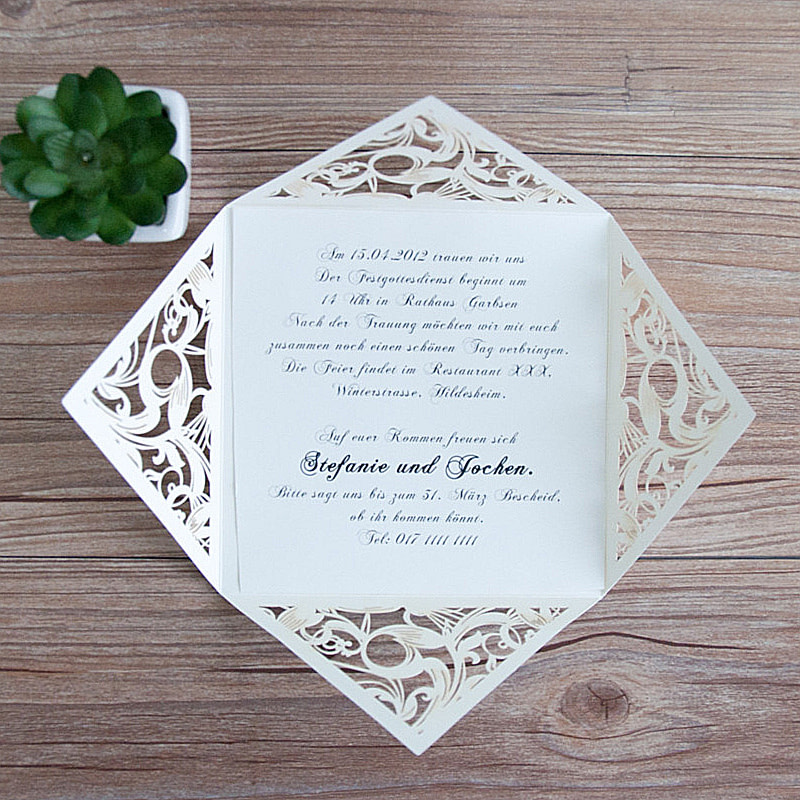 Am 15.04.2012 trauen wir uns
Der Festgottesdienst beginnt um
14 Uhr in Rathaus Garbsen
Nach der Trauung möchten wir mit euch
zusammen noch einen schönen Tag verbringen.
Die Feier findet im Restaurant XXX,
Winterstrasse, Hildesheim.
Auf euer Kommen freuen sich
Stefanie und Jochen.
Bitte sagt uns bis zum 31. März Bescheid,
ob ihr kommen könnt.
Tel: 017 1111 1111